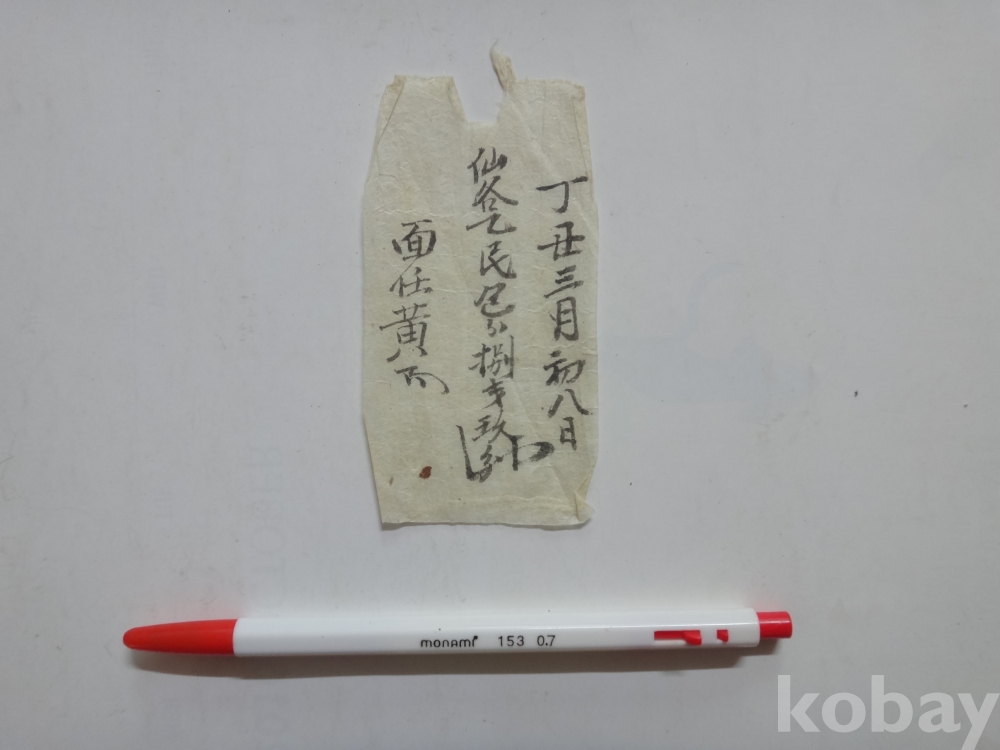 丁丑三月初八日
仙谷 民 捌 玖
面任黃
monami 153 0.7
kobay